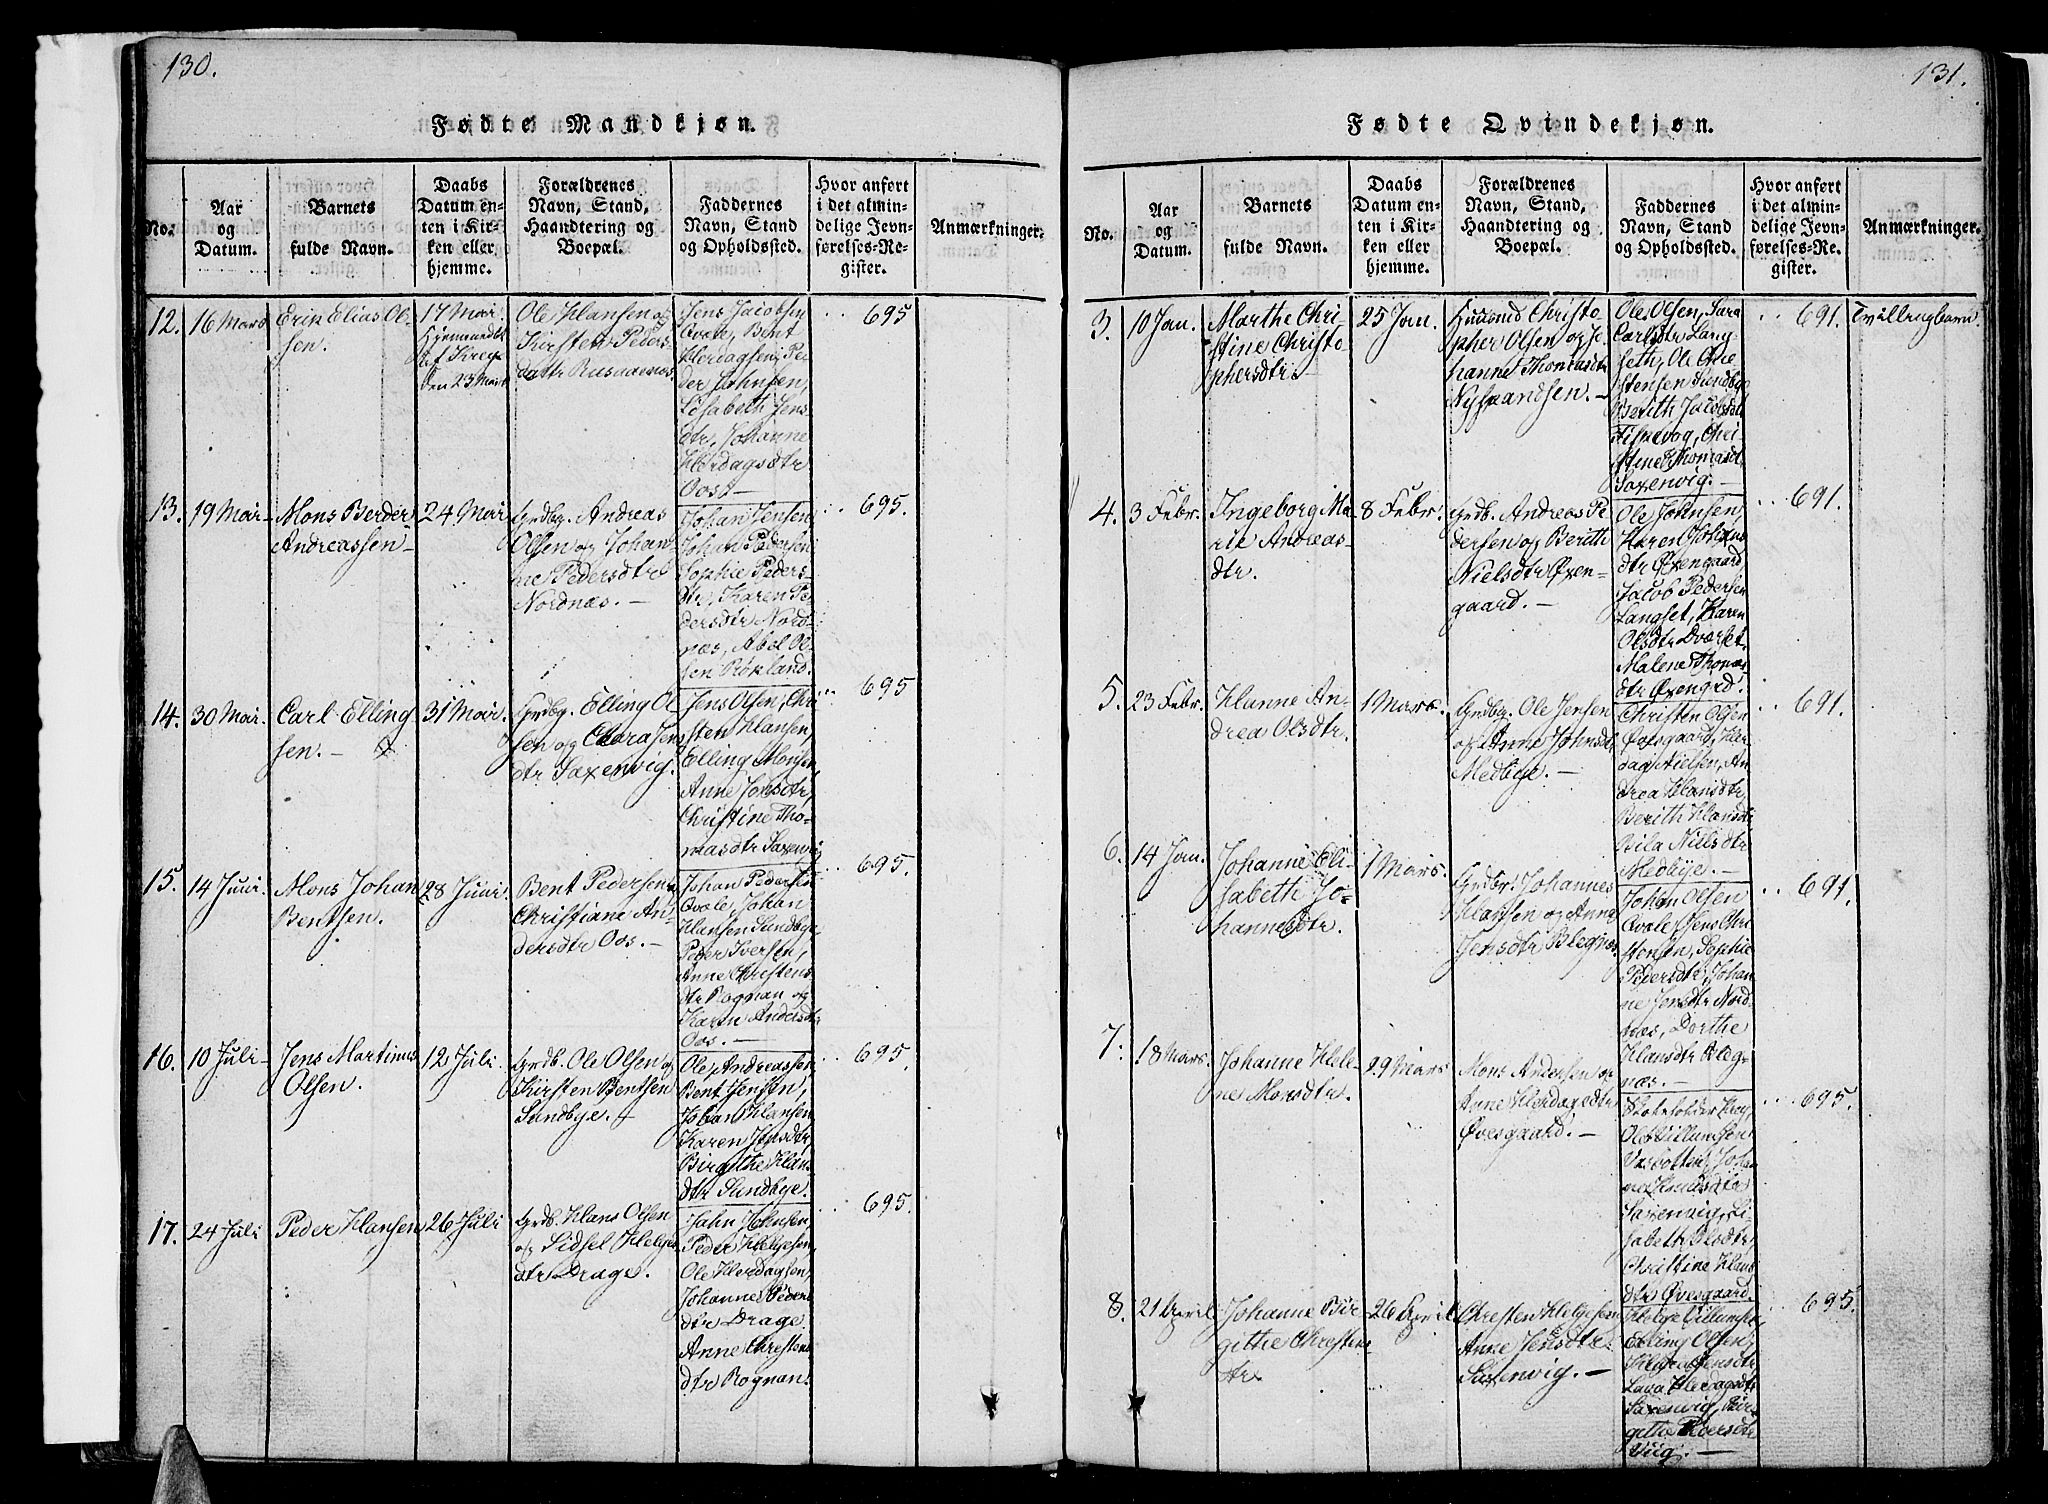 130.
Fødte Mandkjøn.
No.
Aar
og
Datum.
Barnets
fulde Navn.
Daabs
Datum en-
ten i Kir-
ken eller
hjemme.
Forældrenes
Navn, Stand,
Haandtering og
Boepæl.
Faddernes
Navn, Stand
og Opholdssted.
Hvor anført
i det almin-
delige Jevn-
førelses-Re-
gister.
Anmærkninger.
12.
16 Mars
Erik Elias Ol-
sen.
17 Mai
Hjemmedøbt
den 23 Mart
Ole Hansen og
Kirsten Peders-
datter
Jens Jacobsen
Qvale, Bent
Herdagsen, Pe-
der Johnsen,
Lisabeth Jens
dtr, Johanne
Herdagsdtr
Oost—
695
13.
19 Mai
Mons Berder
Andreassen
24 Mai
Grdbg. Andreas
Olsen og Johan-
ne Pedersdtr
Nordnæs. —
Johan Jensen,
Johan Pedersen
Sophie Peders-
dtr, Karen Pe-
dersdtr Nord-
næs, Abel Ol-
sen Røkland.
695.
14.
30 Mai.
Carl Elling
sen. —
31 Mai.
Grdbg. Elling Ol
sen og Clara Jens
dtr Saxenvig.
Jens Olsen, Chri
sten Hansen,
Elling Monsen
Anne Johsdtr,
Christine Tho-
masdtr Saxenvig
695
15.
14 Juni.
Mons Johan
Bentsen.
28 Juni.
Bent Pedersen
Christiane An-
dersdtr Oos. —
Johan Pedersen
Qvale, Johan
Hansen Sundbye
Peder Iversen,
Anne Christens
dtr Rognan og
Karen Andersdtr
Oos. —
695.
16.
10 Juli
Jens Martinus
Olsen.
12 Juli.
Grdb. Ole Olsen og
Kirsten Bentsen
Sundbye. —
Ole Andreassen
Bent Jensen,
Johan Hansen
Karen Jensdtr
Birgithe Hans
dtr Sundbye.
695.
17.
24 Juli
Peder Hansen
26 Juli
Grdb. Hans Olsen
og Sidsel Helges
dtr Drage.
John Johnsen,
Peder Helgesen,
Ole Herdagsen,
Johanne Peders
dtr Drage.
Anne Christens
dtr Rognan.
695.
131.
Fødte Qvindekjøn.
No.
Aar
og
Datum.
Barnets
fulde Navn.
Daabs
Datum en-
ten i Kir-
ken eller
hjemme.
Forældrenes
Navn, Stand,
Haandtering og
Boepæl.
Faddernes
Navn, Stand
og Opholdssted.
Hvor anført
i det almin-
delige Jevn-
førelses-Re-
gister.
Anmærkninger.
3.
10 Jan.
Marthe Chri-
stine Christo-
phersdtr.
25 Jan.
Huusmd Christo
pher Olsen og Jo
hanne Thomasdtr
Ole Olsen, Sara
Carlsdtr Lang
seth, Ole Chri
stensen Sundby
Berith Jacobsdtr
Fiskvog, Chri-
stine Thomasdtr
Saxenvig. —
691.
Tvillingbarn
4.
3 Febr.
Ingeborg Ma-
rie Andreas-
dtr.
8 Febr.
Grdb. Andreas Pe
dersen og Berith
Nielsdtr Øxen-
gaard. —
Ole Johnsen,
Karen Johans
dtr Øxengaard
Jacob Pedersen
Langset, Karen
Olsdtr Dværset
Malene Thomas
dtr Øxengrd.
691.
5.
23 Febr.
Hanne An-
drea Olsdtr.
1 Mars.
Grdbg. Ole Jensen
og Anne Johnsdtr
Medbye. —
Christen Olsen
Øvesgaard, Her
dag Nielsen, An
drea Hansdtr
Berith Hansdtr
Bila Nielsdtr
Medbye. —
691.
6.
14 Jan.
Johanne Eli-
sabeth Jo-
hannesdtr.
1 Mars.
Grdbr. Johannes
Hansen og Anne
Jensdtr Blegnæs.
Johan Olsen
Qvale, Jens Chri
stensen, Sophie
Pedersdtr, Johan
ne Jensdtr Nord-
næs, Dorthe
Hansdtr Bleg-
næs. —
691.
7.
18 Mars.
Johanne Hele-
ne Monsdtr.
29 Mars
Mons Andersen og
Anne Herdagsdtr
Øvesgaard. —
Skoleholder
Ole Villumsen
Johan
Saxenvig, Li-
sabeth Olsdtr,
Christine Hans
dtr Øvesgaard.
695.
8.
21 April
Johanne Bir
githe Christens
dtr.
26 April
Christen Helgesen
Anne Jensdtr
Saxenvig. —
Helge Villumsen,
Elling Olsen,
Lava Herdagsdtr
Saxenvig, Bir
githe Pedersdtr
Viig. —
695.